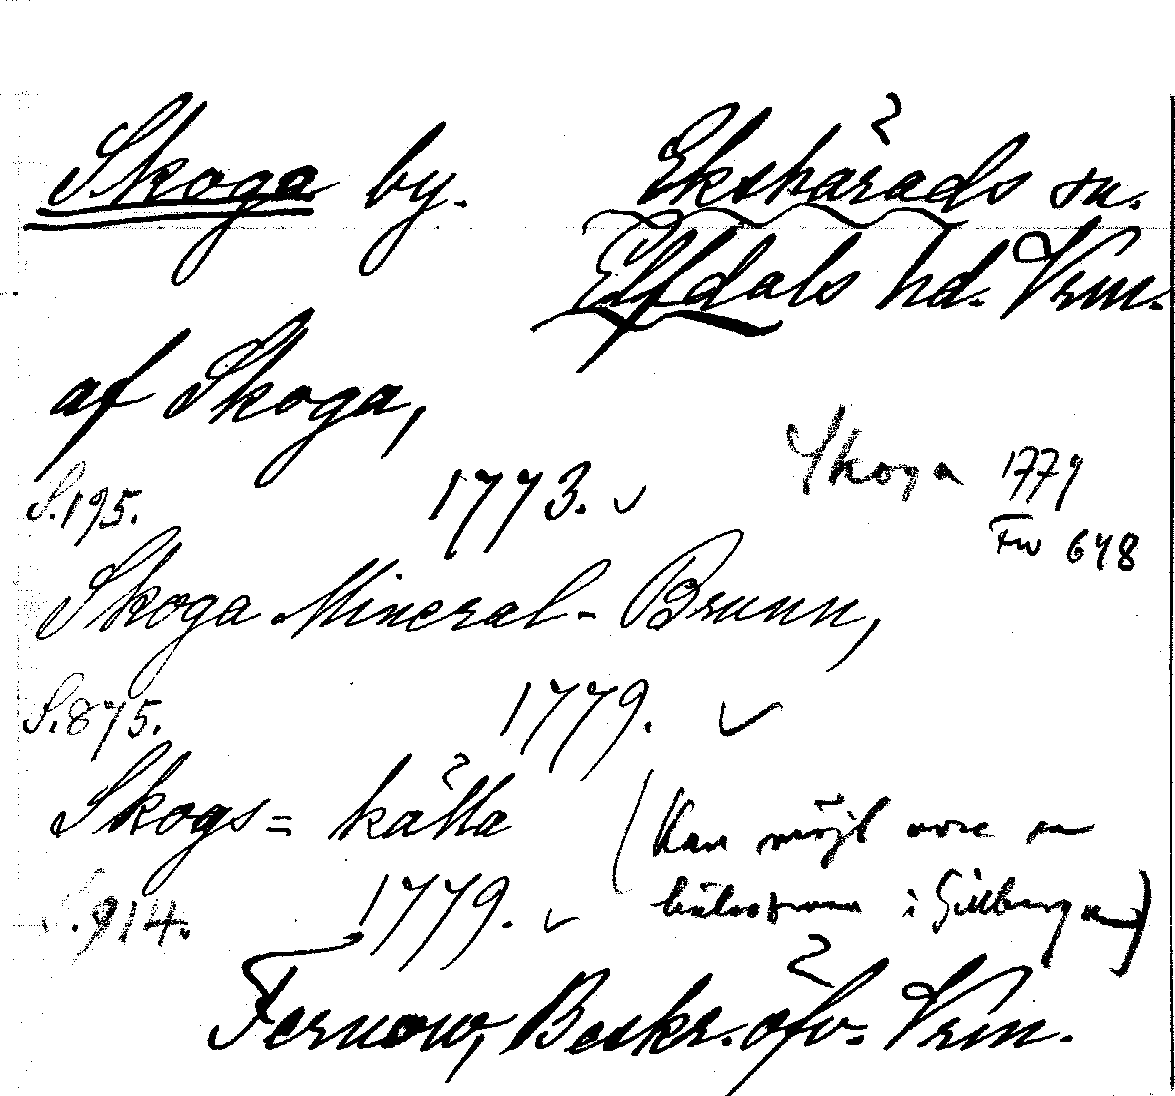 Skoga by. Ekshärads sn.
Elfdals hd. Vrm.
af Skoga,
S. 195. 1773. ✓ Skoga 1779
Fw 648
Skoga Mineral-Brunn,
S. 875. 1779. ✓
Skogs= källa (Kan möjl vara en
hälsobrunn i Gillberga)
S. 914. 1779. ✓
Fernow, Beskr. öfv. Vrm.